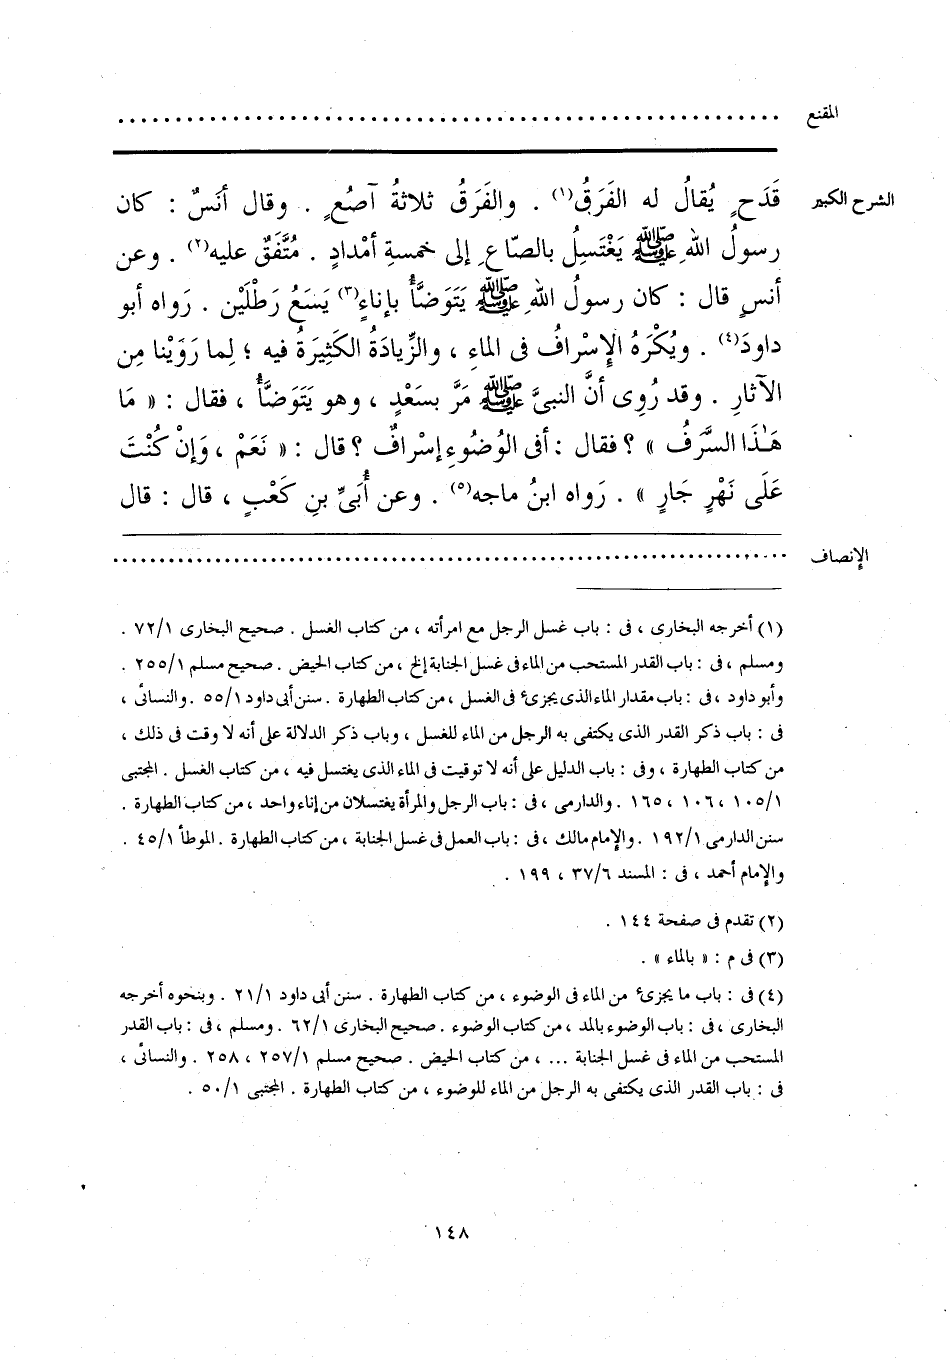 المقنع
الشرح الكبير
قَدَحٍ يُقالُ له الفَرَقُ(١) . والفَرَقُ ثلاثةُ آصُعٍ . وقال أنَسٌ : كان
رسولُ اللهِ ﷺ يَغْتَسِلُ بالصّاعِ إلى خمسةِ أمْدادٍ . مُتَّفَقٌ عليه(٢) . وعن
أنسٍ قال : كان رسولُ اللهِ ﷺ يَتَوَضَّأُ بإناءٍ(٣) يَسَعُ رَطْلَيْن . رَواه أبو
داودَ(٤) . ويُكْرَهُ الإِسْرافُ فى الماءِ ، والزِّيادَةُ الكَثِيرَةُ فيه ؛ لِما رَوَيْنا مِن
الآثارِ . وقد رُوِى أنَّ النبىَّ ﷺ مَرَّ بسَعْدٍ ، وهو يَتَوَضَّأُ ، فقال : « مَا
هَـٰذَا السَّرَفُ » ؟ فقال : أفى الوُضُوءِ إسْرافٌ ؟ قال : « نَعَمْ ، وَإنْ كُنْتَ
عَلَى نَهْرٍ جَارٍ » . رَواه ابنُ ماجه(٥) . وعن أُبَىِّ بنِ كَعْبٍ ، قال : قال
الإنصاف
(١) أخرجه البخارى ، فى : باب غسل الرجل مع امرأته ، من كتاب الغسل . صحيح البخارى ٧٢/١ .
ومسلم ، فى : باب القدر المستحب من الماء فى غسل الجنابة إلخ ، من كتاب الحيض . صحيح مسلم ٢٥٥/١ .
وأبو داود ، فى : باب مقدار الماء الذى يجزئ فى الغسل ، من كتاب الطهارة . سنن أبى داود ٥٥/١ . والنسائى ،
فى : باب ذكر القدر الذى يكتفى به الرجل من الماء للغسل ، وباب ذكر الدلالة على أنه لا وقت فى ذلك ،
من كتاب الطهارة ، وفى : باب الدليل على أنه لا توقيت فى الماء الذى يغتسل فيه ، من كتاب الغسل . المجتبى
١٠٥/١ ، ١٠٦ ، ١٦٥ . والدارمى ، فى : باب الرجل والمرأة يغتسلان من إناء واحد ، من كتاب الطهارة .
سنن الدارمى ١٩٢/١ . والإمام مالك ، فى : باب العمل فى غسل الجنابة ، من كتاب الطهارة . الموطأ ٤٥/١ .
والإمام أحمد ، فى : المسند ٣٧/٦ ، ١٩٩ .
(٢) تقدم فى صفحة ١٤٤ .
(٣) فى م : « بالماء » .
(٤) فى : باب ما يجزئ من الماء فى الوضوء ، من كتاب الطهارة . سنن أبى داود ٢١/١ . وبنحوه أخرجه
البخارى ، فى : باب الوضوء بالمد ، من كتاب الوضوء . صحيح البخارى ٦٢/١ . ومسلم ، فى : باب القدر
المستحب من الماء فى غسل الجنابة ... ، من كتاب الحيض . صحيح مسلم ٢٥٧/١ ، ٢٥٨ . والنسائى ،
فى : باب القدر الذى يكتفى به الرجل من الماء للوضوء ، من كتاب الطهارة . المجتبى ٥٠/١ .
١٤٨